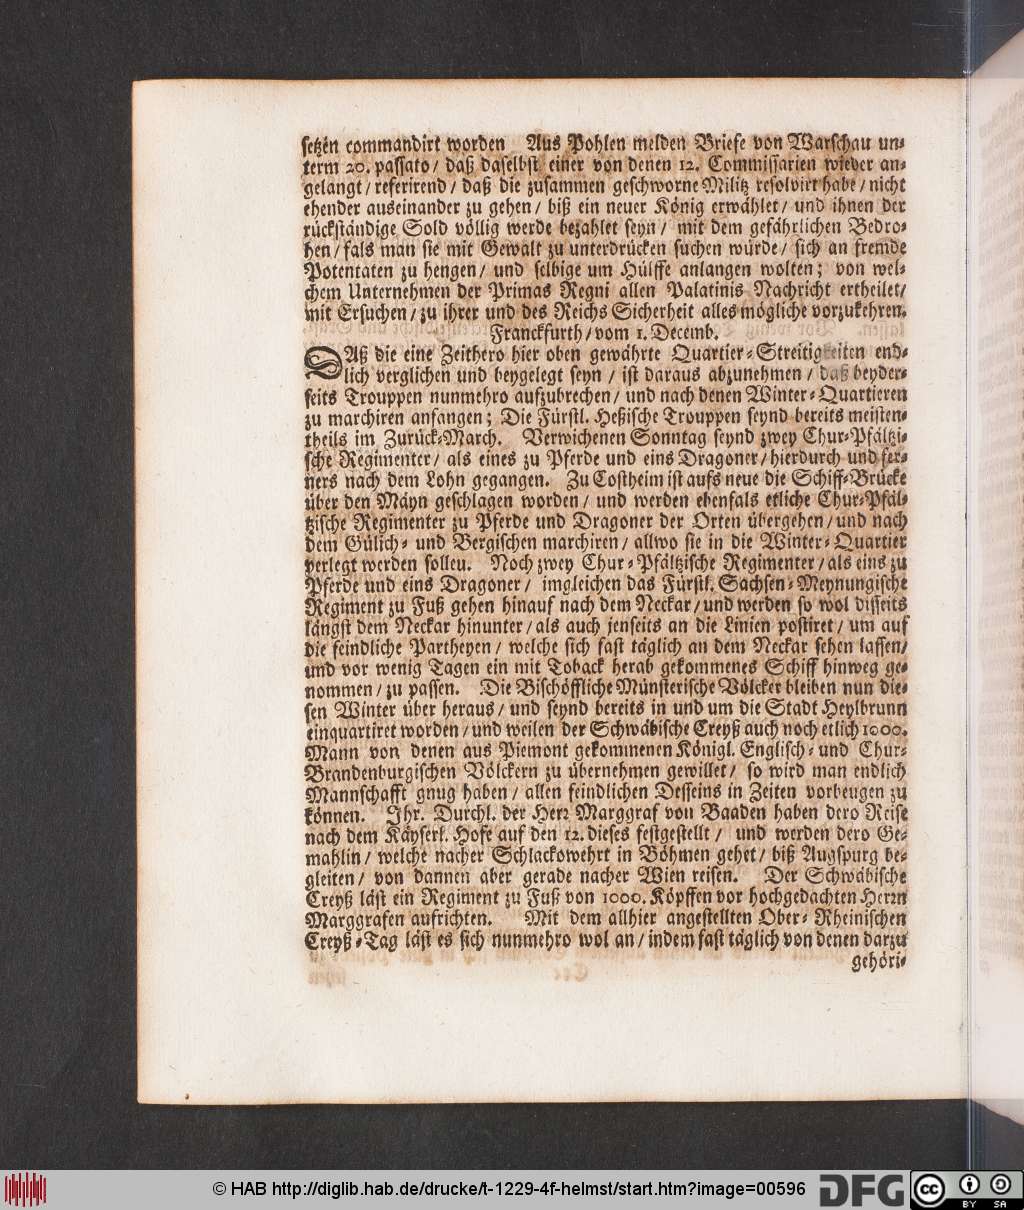 setzen commandirt worden Aus Pohlen melden Briefe von Warschau un-
term 20. passato / daß daselbst einer von denen 12. Commissarien wieder an-
gelangt / referirend / daß die zusammen geschworne Militz resolvirt habe / nicht
ehender auseinander zu gehen / biß ein neuer König erwählet / und ihnen der
rückständige Sold völlig werde bezahlet seyn / mit dem gefährlichen Bedro-
hen / fals man sie mit Gewalt zu unterdrücken suchen würde / sich an fremde
Potentaten zu hengen / und selbige um Hülffe anlangen wolten; von wel-
chem Unternehmen der Primas Regni allen Palatinis Nachricht ertheilet /
mit Ersuchen / zu ihrer und des Reichs Sicherheit alles mögliche vorzukehren.
Franckfurth / vom 1. Decemb.
DAß die eine Zeithero hier oben gewährte Quartier-Streitigkeiten end-
lich verglichen und beygelegt seyn / ist daraus abzunehmen / daß beyder-
seits Trouppen nunmehro aufzubrechen / und nach denen Winter-Quartieren
zu marchiren anfangen; Die Fürstl. Heßische Trouppen seynd bereits meisten-
theils im Zurück-March. Verwichenen Sonntag seynd zwey Chur-Pfältzi-
sche Regimenter / als eines zu Pferde und eins Dragoner / hierdurch und fer-
ners nach dem Lohn gegangen. Zu Costheim ist aufs neue die Schiff-Brücke
über den Mayn geschlagen worden / und werden ebenfals etliche Chur-Pfäl-
tzische Regimenter zu Pferde und Dragoner der Orten übergehen / und nach
dem Gülich- und Bergischen marchiren / allwo sie in die Winter-Quartier
verlegt werden sollen. Noch zwey Chur-Pfältzische Regimenter / als eins zu
Pferde und eins Dragoner / imgleichen das Fürstl. Sachsen-Meynungische
Regiment zu Fuß gehen hinauf nach dem Neckar / und werden so wol disseits
längst dem Neckar hinunter / als auch jenseits an die Linien postiret / um auf
die feindliche Partheyen / welche sich fast täglich an dem Neckar sehen lassen /
und vor wenig Tagen ein mit Toback herab gekommenes Schiff hinweg ge-
nommen / zu passen. Die Bischöffliche Münsterische Völcker bleiben nun die-
sen Winter über heraus / und seynd bereits in und um die Stadt Heylbrunn
einquartiret worden / und weilen der Schwäbische Creyß auch noch etlich 1000.
Mann von denen aus Piemont gekommenen Königl. Englisch- und Chur-
Brandenburgischen Völckern zu übernehmen gewillet / so wird man endlich
Mannschafft gnug haben / allen feindlichen Desseins in Zeiten vorbeugen zu
können. Ihr. Durchl. der Herr Marggraf von Baaden haben dero Reise
nach dem Käyserl. Hofe auf den 12. dieses festgestellt / und werden dero Ge-
mahlin / welche nacher Schlackowehrt in Böhmen gehet / biß Augspurg be-
gleiten / von dannen aber gerade nacher Wien reisen. Der Schwäbische
Creyß läst ein Regiment zu Fuß von 1000. Köpffen vor hochgedachten Herrn
Marggrafen aufrichten. Mit dem allhier angestellten Ober-Rheinischen
Creyß-Tag läst es sich nunmehro wol an / indem fast täglich von denen darzu
gehöri-
© HAB http://diglib.hab.de/drucke/t-1229-4f-helmst/start.htm?image=00596
DFG
cc BY SA